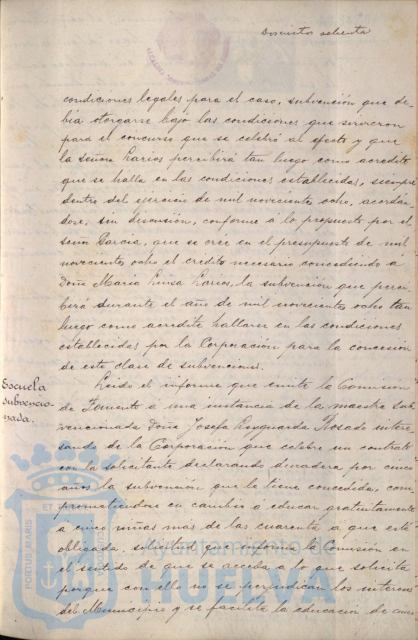 Doscientos setenta
condiciones legales para el caso, subvención que de-
bía otorgarse bajo las condiciones que sirvieron
para el concurso que se celebró al efecto y que
la señora Larios percibirá tan luego como acredite
que se halla en las condiciones establecidas, siempre
dentro del ejercicio de mil novecientos ocho, acordán-
dose, sin discusión, conforme á lo propuesto por el
señor García, que se cree en el presupuesto de mil
novecientos ocho el crédito necesario concediendo á
Doña María Luisa Larios, la subvención que perci-
birá durante el año de mil novecientos ocho tan
luego como acredite hallarse en las condiciones
establecidas por la Corporación para la concesión
de esta clase de subvenciones.
Escuela
subvencio-
nada.
Leido el informe que emite la Comisión
de Fomento á una instancia de la maestra sub-
vencionada Doña Josefa Rosado intere-
sando de la Corporación que celebre un contrato
con la solicitante declarando duradera por cinco
años la subvención que le tiene concedida, com-
prometiéndose en cambio á educar gratuitamente
á cinco niñas más de las cuarenta a que está
obligada, solicitud que informa la Comisión en
el sentido de que se acceda á lo que solicita
porque con ello no se perjudican los intereses
del Municipio y se facilita la educación de cinco
PORTUS MARIS ET
Ayuntamiento de
HUELVA